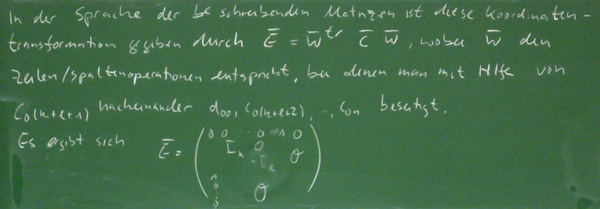 In der Sprache der beschreibenden Matrizen ist diese Koordinaten-
transformation gegeben durch E̅ = W̅ᵗʳ C̅ W̅, wobei W̅ den
Zeilen/Spaltenoperationen entspricht, bei denen man mit Hilfe von
C₀(k+ℓ+1) nacheinander d₀₀, C₀(k+ℓ+2), .., C₀ₙ beseitigt.
Es ergibt sich E̅ = ( 0 0 ... 0 1 0
I_k 0 0
-I_ℓ
1
0
:
0 0 )